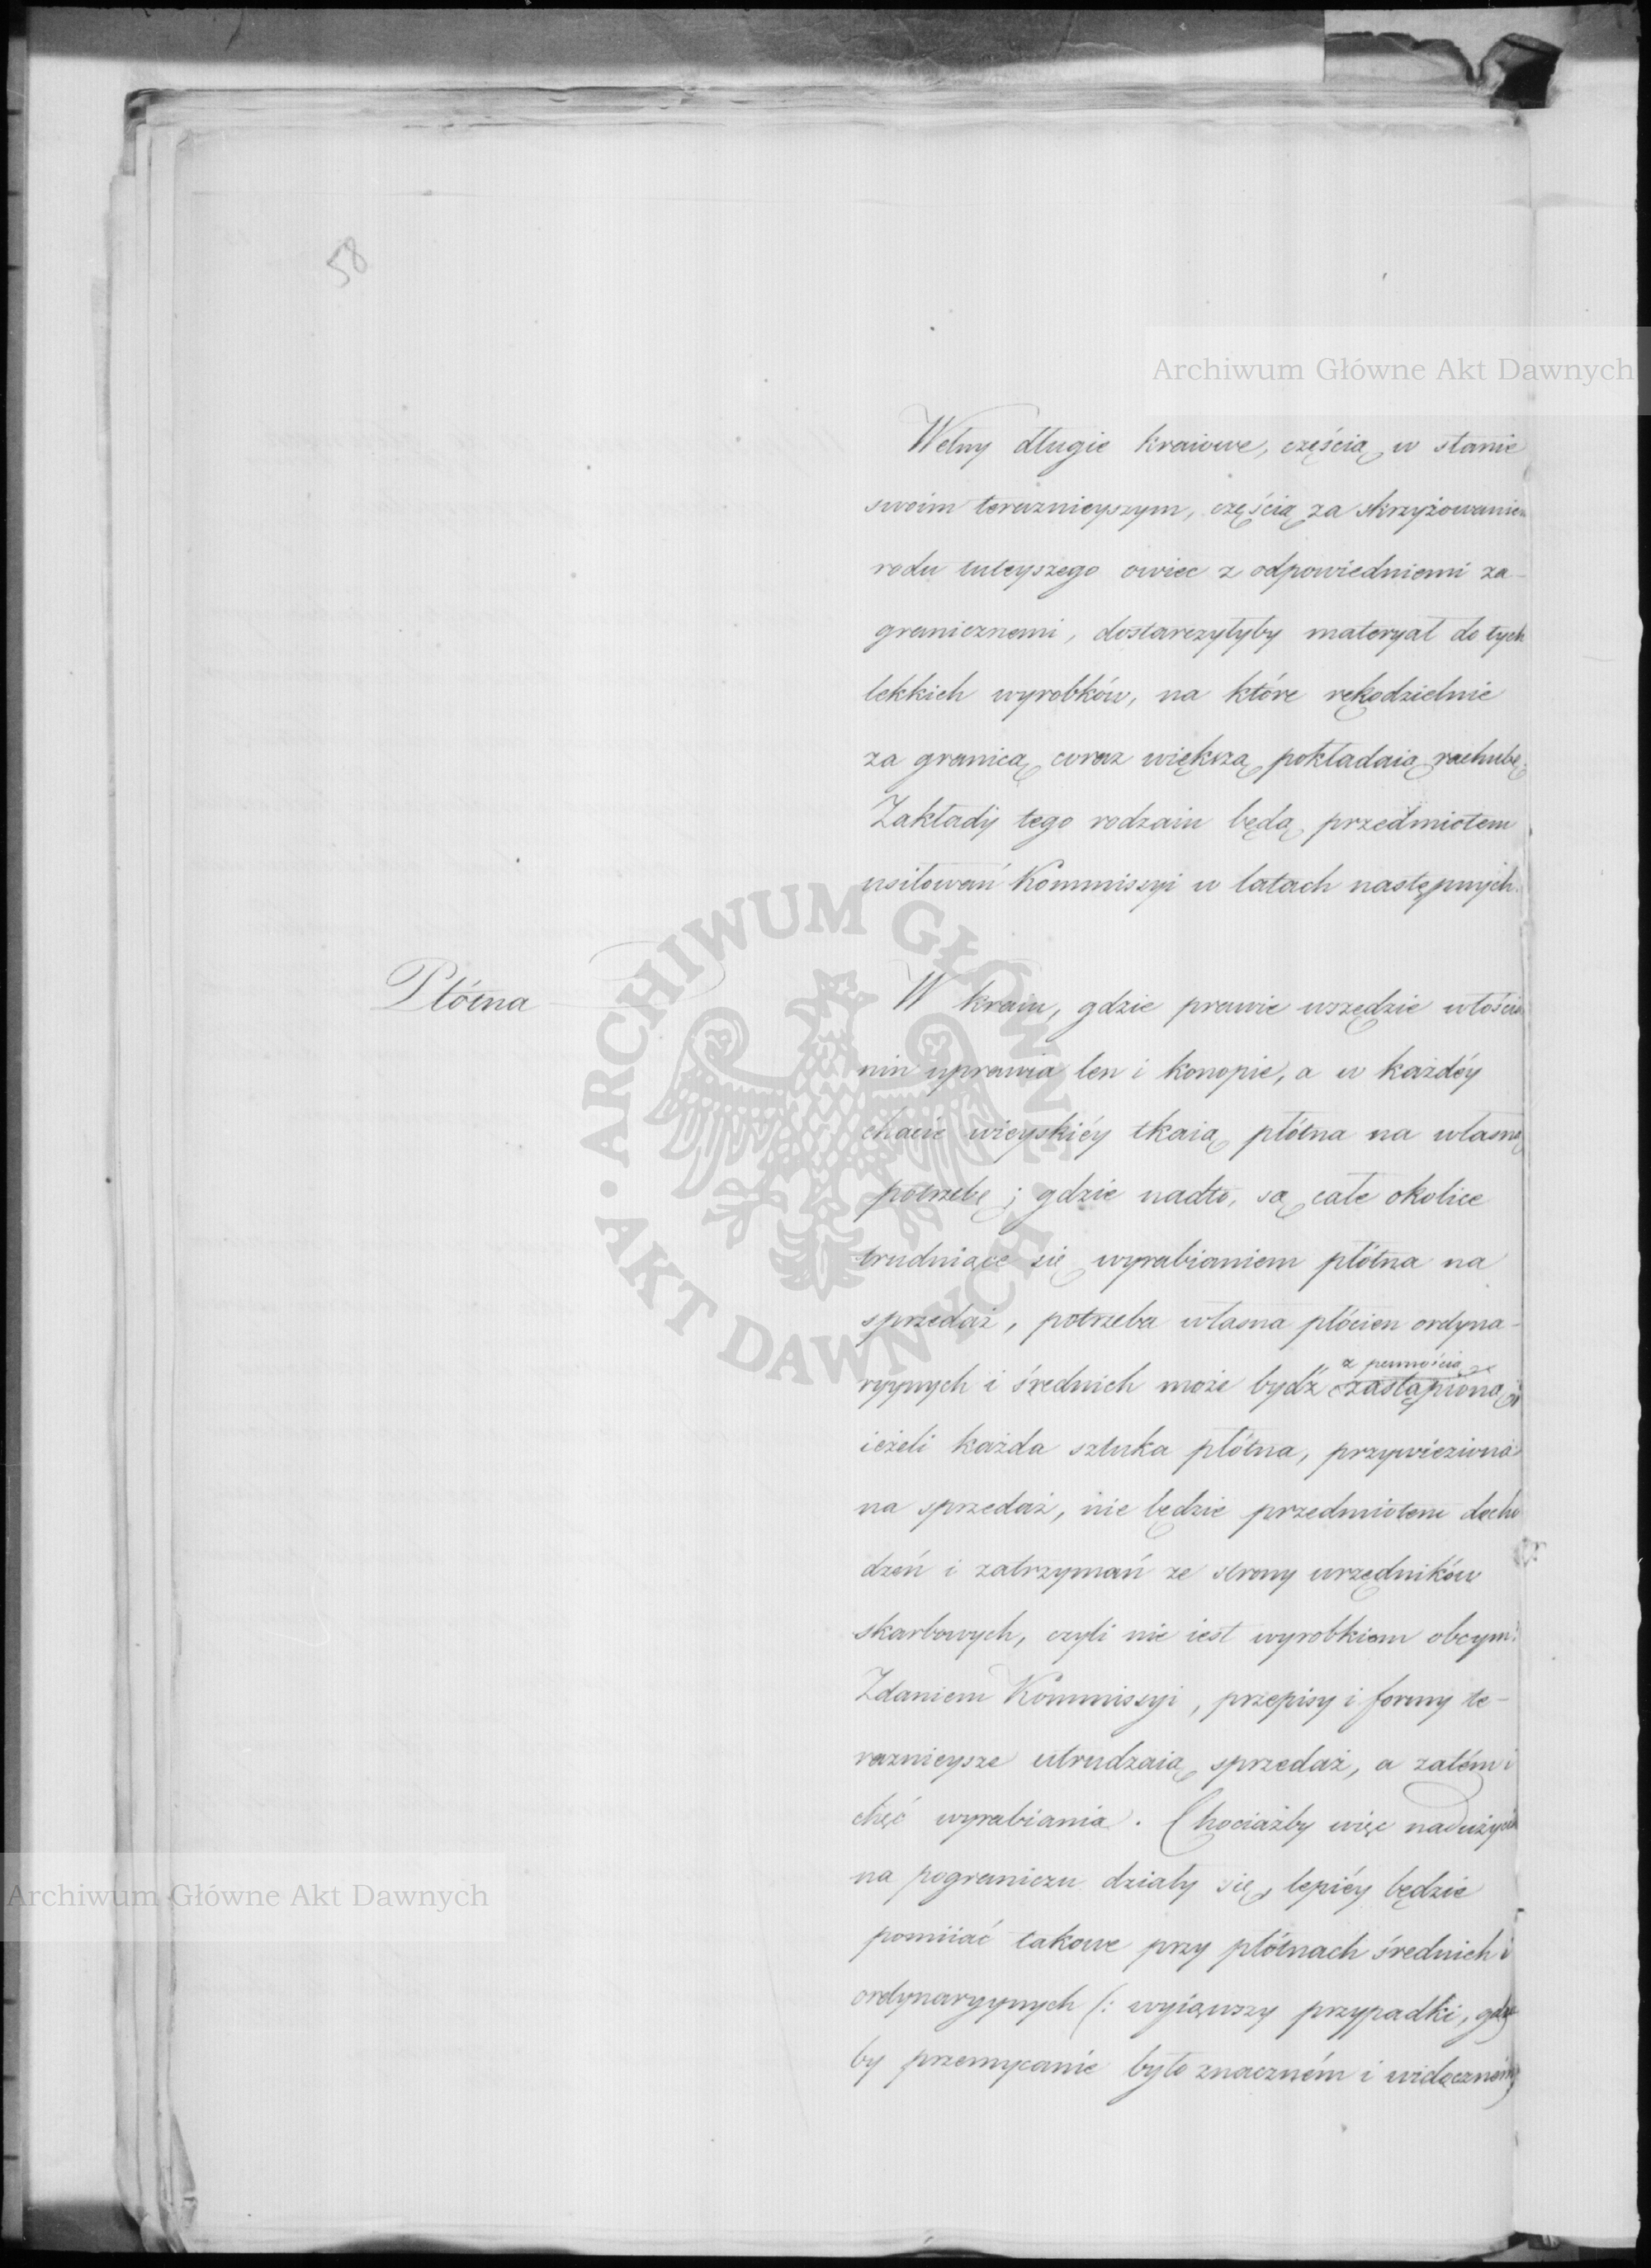 58
Archiwum Główne Akt Dawnych
Wełny długie kraiowe, częścią w stanie
swoim teraznieyszym, częścią za skrzyżowaniem
rodu tuteyszego owiec z odpowiedniemi za-
granicznemi, dostarczyłyby materyał do tych
lekkich wyrobków, na które rękodzielnie
za granicą coraz większą pokładaią rachubę.
Zakłady tego rodzaiu będą przedmiotem
usiłowań Kommissyi w latach następnych.
Płótna
W kraiu, gdzie prawie wszędzie włościa
nin uprawia len i konopie, a w każdéy
chacie wieyskiéy tkaią płótna na własną
potrzebę; gdzie nadto, są całe okolice
trudniące się wyrabianiem płótna na
sprzedaż, potrzeba własna płócien ordyna-
ryynych i średnich może bydź z pewnością zastąpioną,
ieżeli każda sztuka płótna, przywieziona
na sprzedaż, nie będzie przedmiotem docho
dzeń i zatrzymań ze strony urzędników
skarbowych, czyli nie iest wyrobkiem obcym.
Zdaniem Kommissyi, przepisy i formy te-
raznieysze utrudzaią sprzedaż, a zatém i
chęć wyrabiania. Chociażby więc nadużycia
na pograniczu działy się, lepiéy będzie
pomiiać takowe przy płótnach średnich i
ordynaryynych (: wyiąwszy przypadki, gdzie
by przemycanie było znaczném i widoczném)
ARCHIWUM GŁÓWNE AKT DAWNYCH
Archiwum Główne Akt Dawnych